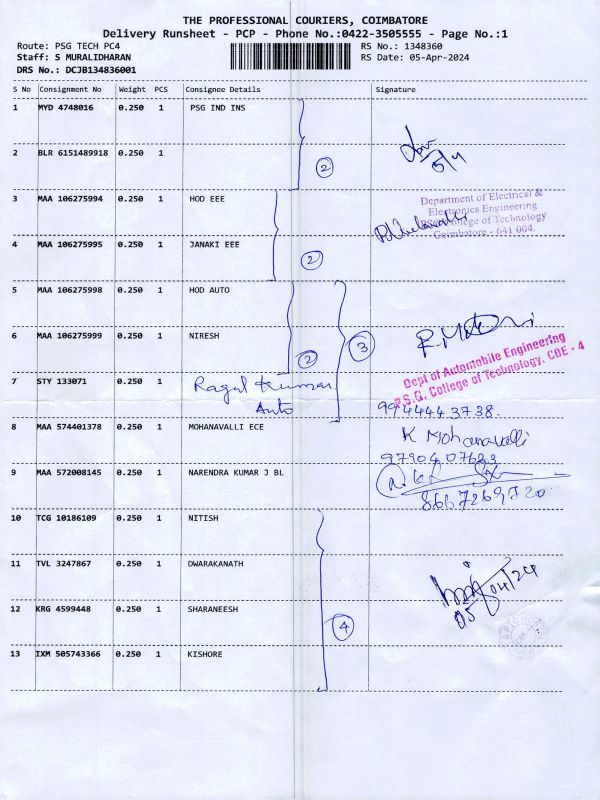 THE PROFESSIONAL COURIERS, COIMBATORE
Delivery Runsheet - PCP - Phone No.:0422-3505555 - Page No.:1
Route: PSG TECH PC4 RS No.: 1348360
Staff: S MURALIDHARAN RS Date: 05-Apr-2024
DRS No.: DCJB134836001
S No Consignment No Weight PCS Consignee Details Signature
1 MYD 4748016 0.250 1 PSG IND INS
2 BLR 6151489918 0.250 1
2
5/4
3 MAA 106275994 0.250 1 HOD EEE
Department of Electrical &
Electronics Engineering
PSG College of Technology
Coimbatore - 641 004.
4 MAA 106275995 0.250 1 JANAKI EEE
2
5 MAA 106275998 0.250 1 HOD AUTO
6 MAA 106275999 0.250 1 NIRESH
3
2
Dept of Automobile Engineering
P.S.G. College of Technology, CBE - 4
7 STY 133071 0.250 1 Ragul Kumar
Auto 9944443738.
8 MAA 574401378 0.250 1 MOHANAVALLI ECE K Mohanavalli
9790407623
9 MAA 572008145 0.250 1 NARENDRA KUMAR J BL
8667269720
10 TCG 10186109 0.250 1 NITISH
11 TVL 3247867 0.250 1 DWARAKANATH
05/04/24
12 KRG 4599448 0.250 1 SHARANEESH
4
13 IXM 505743366 0.250 1 KISHORE